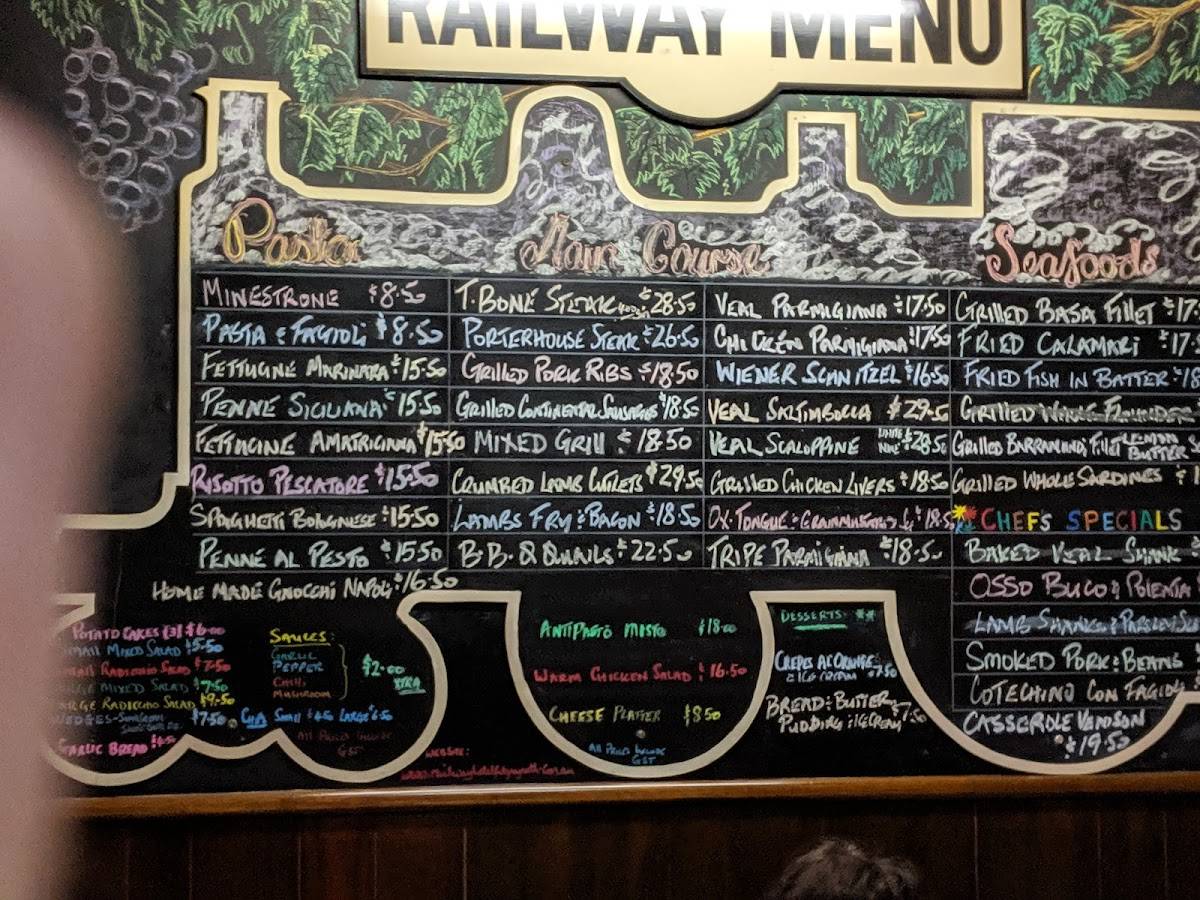 RAILWAY MENU
Pasta
MINESTRONE $8.50
PASTA & FAGIOLI $8.50
FETTUCINE MARINARA $15.50
PENNE SICILIANA $15.50
FETTUCINE AMATRICIANA $15.50
RISOTTO PESCATORE $15.50
SPAGHETTI BOLOGNESE $15.50
PENNE AL PESTO $15.50
HOME MADE GNOCCHI NAPOLI $16.50
Main Course
T.BONE STEAK $28.50
PORTERHOUSE STEAK $26.50
GRILLED PORK RIBS $18.50
GRILLED CONTINENTAL SAUSAGES $18.50
MIXED GRILL $18.50
CRUMBED LAMB CUTLETS $29.50
LAMBS FRY & BACON $18.50
B.B.Q QUAILS $22.50
VEAL PARMIGIANA $17.50
CHICKEN PARMIGIANA $17.50
WIENER SCHNITZEL $16.50
VEAL SALTIMBOCCA $29.50
VEAL SCALOPPINE WHITE WINE $28.50
GRILLED CHICKEN LIVERS $18.50
OX.TONGUE & $18.50
TRIPE PARMIGIANA $18.50
Seafoods
GRILLED BASA FILLET $17.
FRIED CALAMARI $17.
FRIED FISH IN BATTER $18
GRILLED WHOLE FLOUNDER
GRILLED BARRAMUNDI FILLET LEMON BUTTER
GRILLED WHOLE SARDINES $
CHEFS SPECIALS
BAKED VEAL SHANK
OSSO BUCO & POLENTA
LAMB SHANKS & PARSLEY
SMOKED PORK & BEANS
COTECHINO CON FAGIOLI
CASSEROLE VENISON
$19.50
POTATO CAKES (3) $6.00
SMALL MIXED SALAD $5.50
SMALL RADICCHIO SALAD $7.50
LARGE MIXED SALAD $7.50
LARGE RADICCHIO SALAD $9.50
WEDGES $7.50
GARLIC BREAD $4.50
SAUCES:
GARLIC
PEPPER
CHILLI
MUSHROOM
$2.00
XTRA
SMALL $4.50 LARGE $6.50
ALL PRICES INCLUDE
GST
WEBSITE:
ANTIPASTO MISTO $18.00
WARM CHICKEN SALAD $16.50
CHEESE PLATTER $8.50
ALL PRICES INCLUDE
GST
DESSERTS
CREPES AL'ORANGE
& ICE CREAM $7.50
BREAD & BUTTER
PUDDING & ICECREAM $7.50